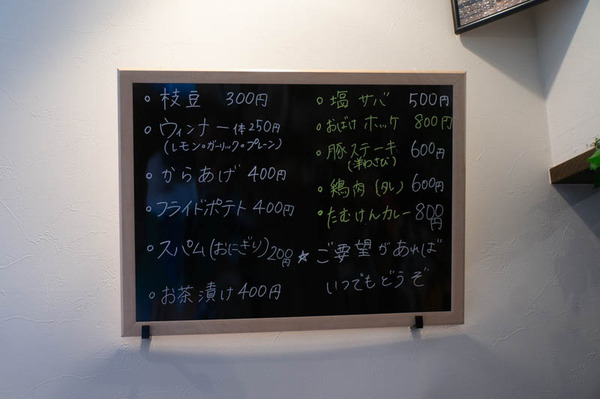 ○ 枝豆 300円
○ ウィンナー 一本 250円
(レモン○ガーリック○プレーン)
○ からあげ 400円
○ フライドポテト 400円
○ スパム(おにぎり) 200円
○ お茶漬け 400円
○ 塩サバ 500円
○ おばけホッケ 800円
○ 豚ステーキ 600円
(洋わさび)
○ 鶏肉(タレ) 600円
○ たむけんカレー 800円
☆ ご要望があれば
いつでもどうぞ